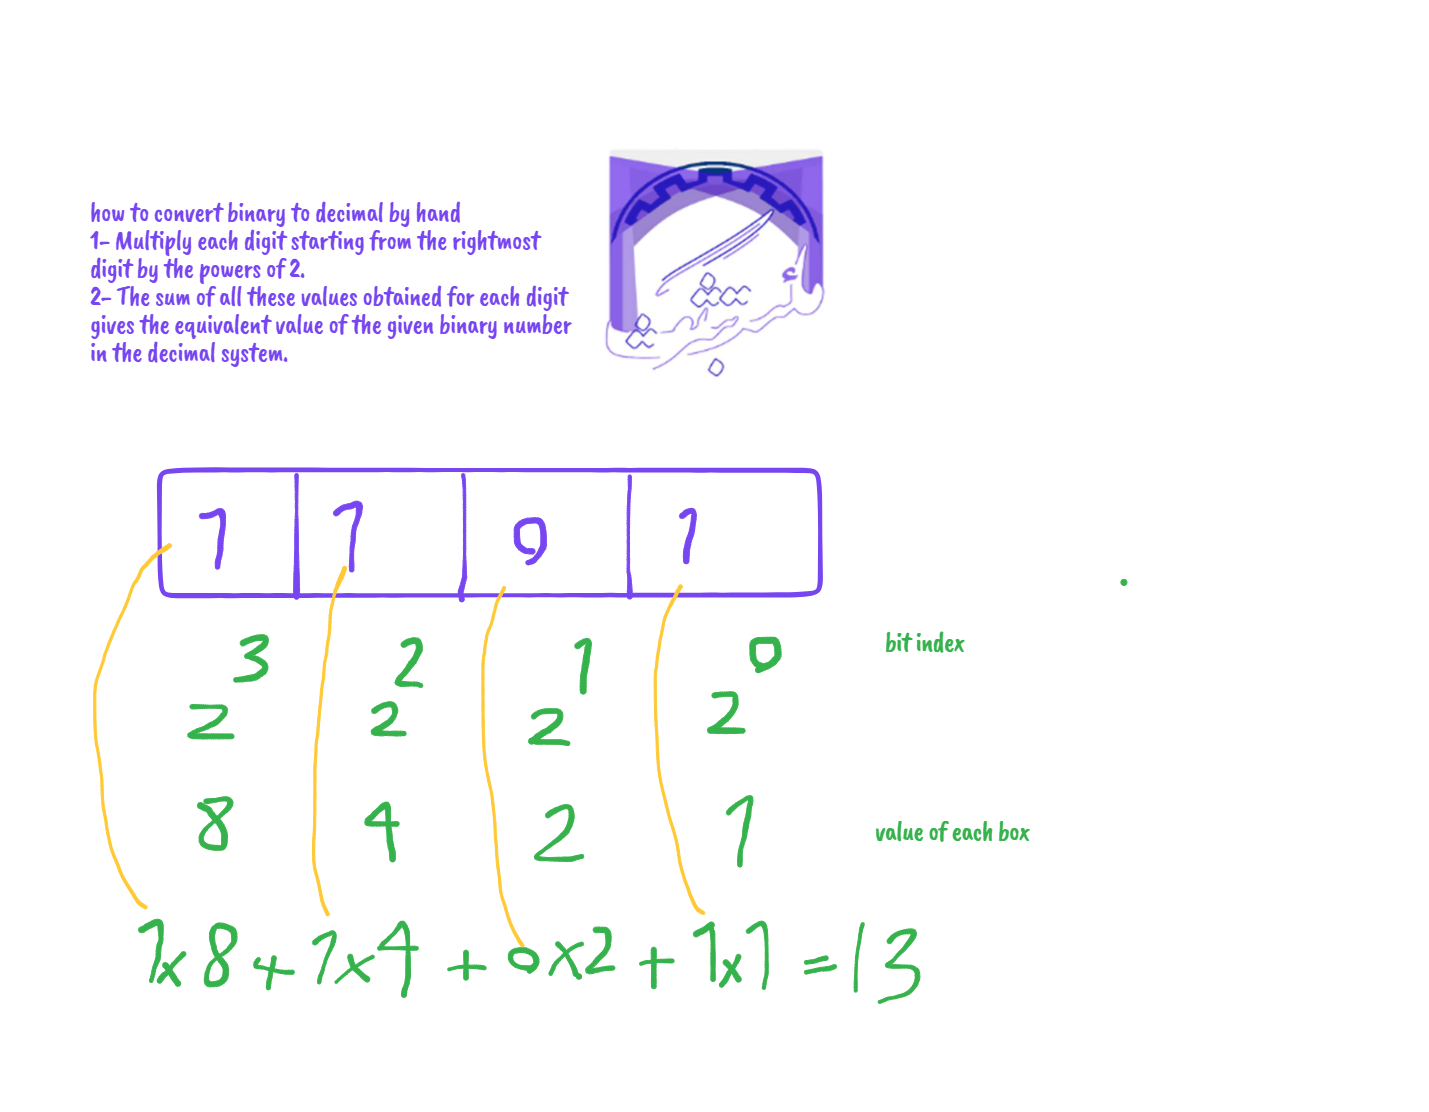 how to convert binary to decimal by hand
1- Multiply each digit starting from the rightmost
digit by the powers of 2.
2- The sum of all these values obtained for each digit
gives the equivalent value of the given binary number
in the decimal system.
1 1 0 1
3 2 1 0 bit index
2 2 2 2
8 4 2 1 value of each box
1x8 + 1x4 + 0x2 + 1x1 = 13